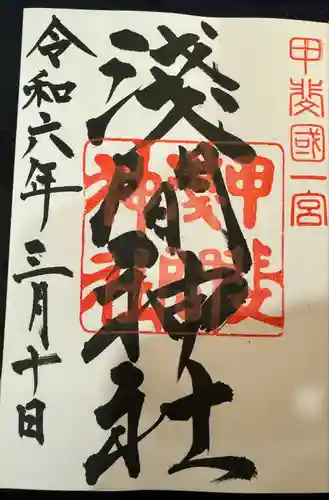 甲斐國一宮
淺間神社
甲斐
淺間
神社
令和六年三月十日